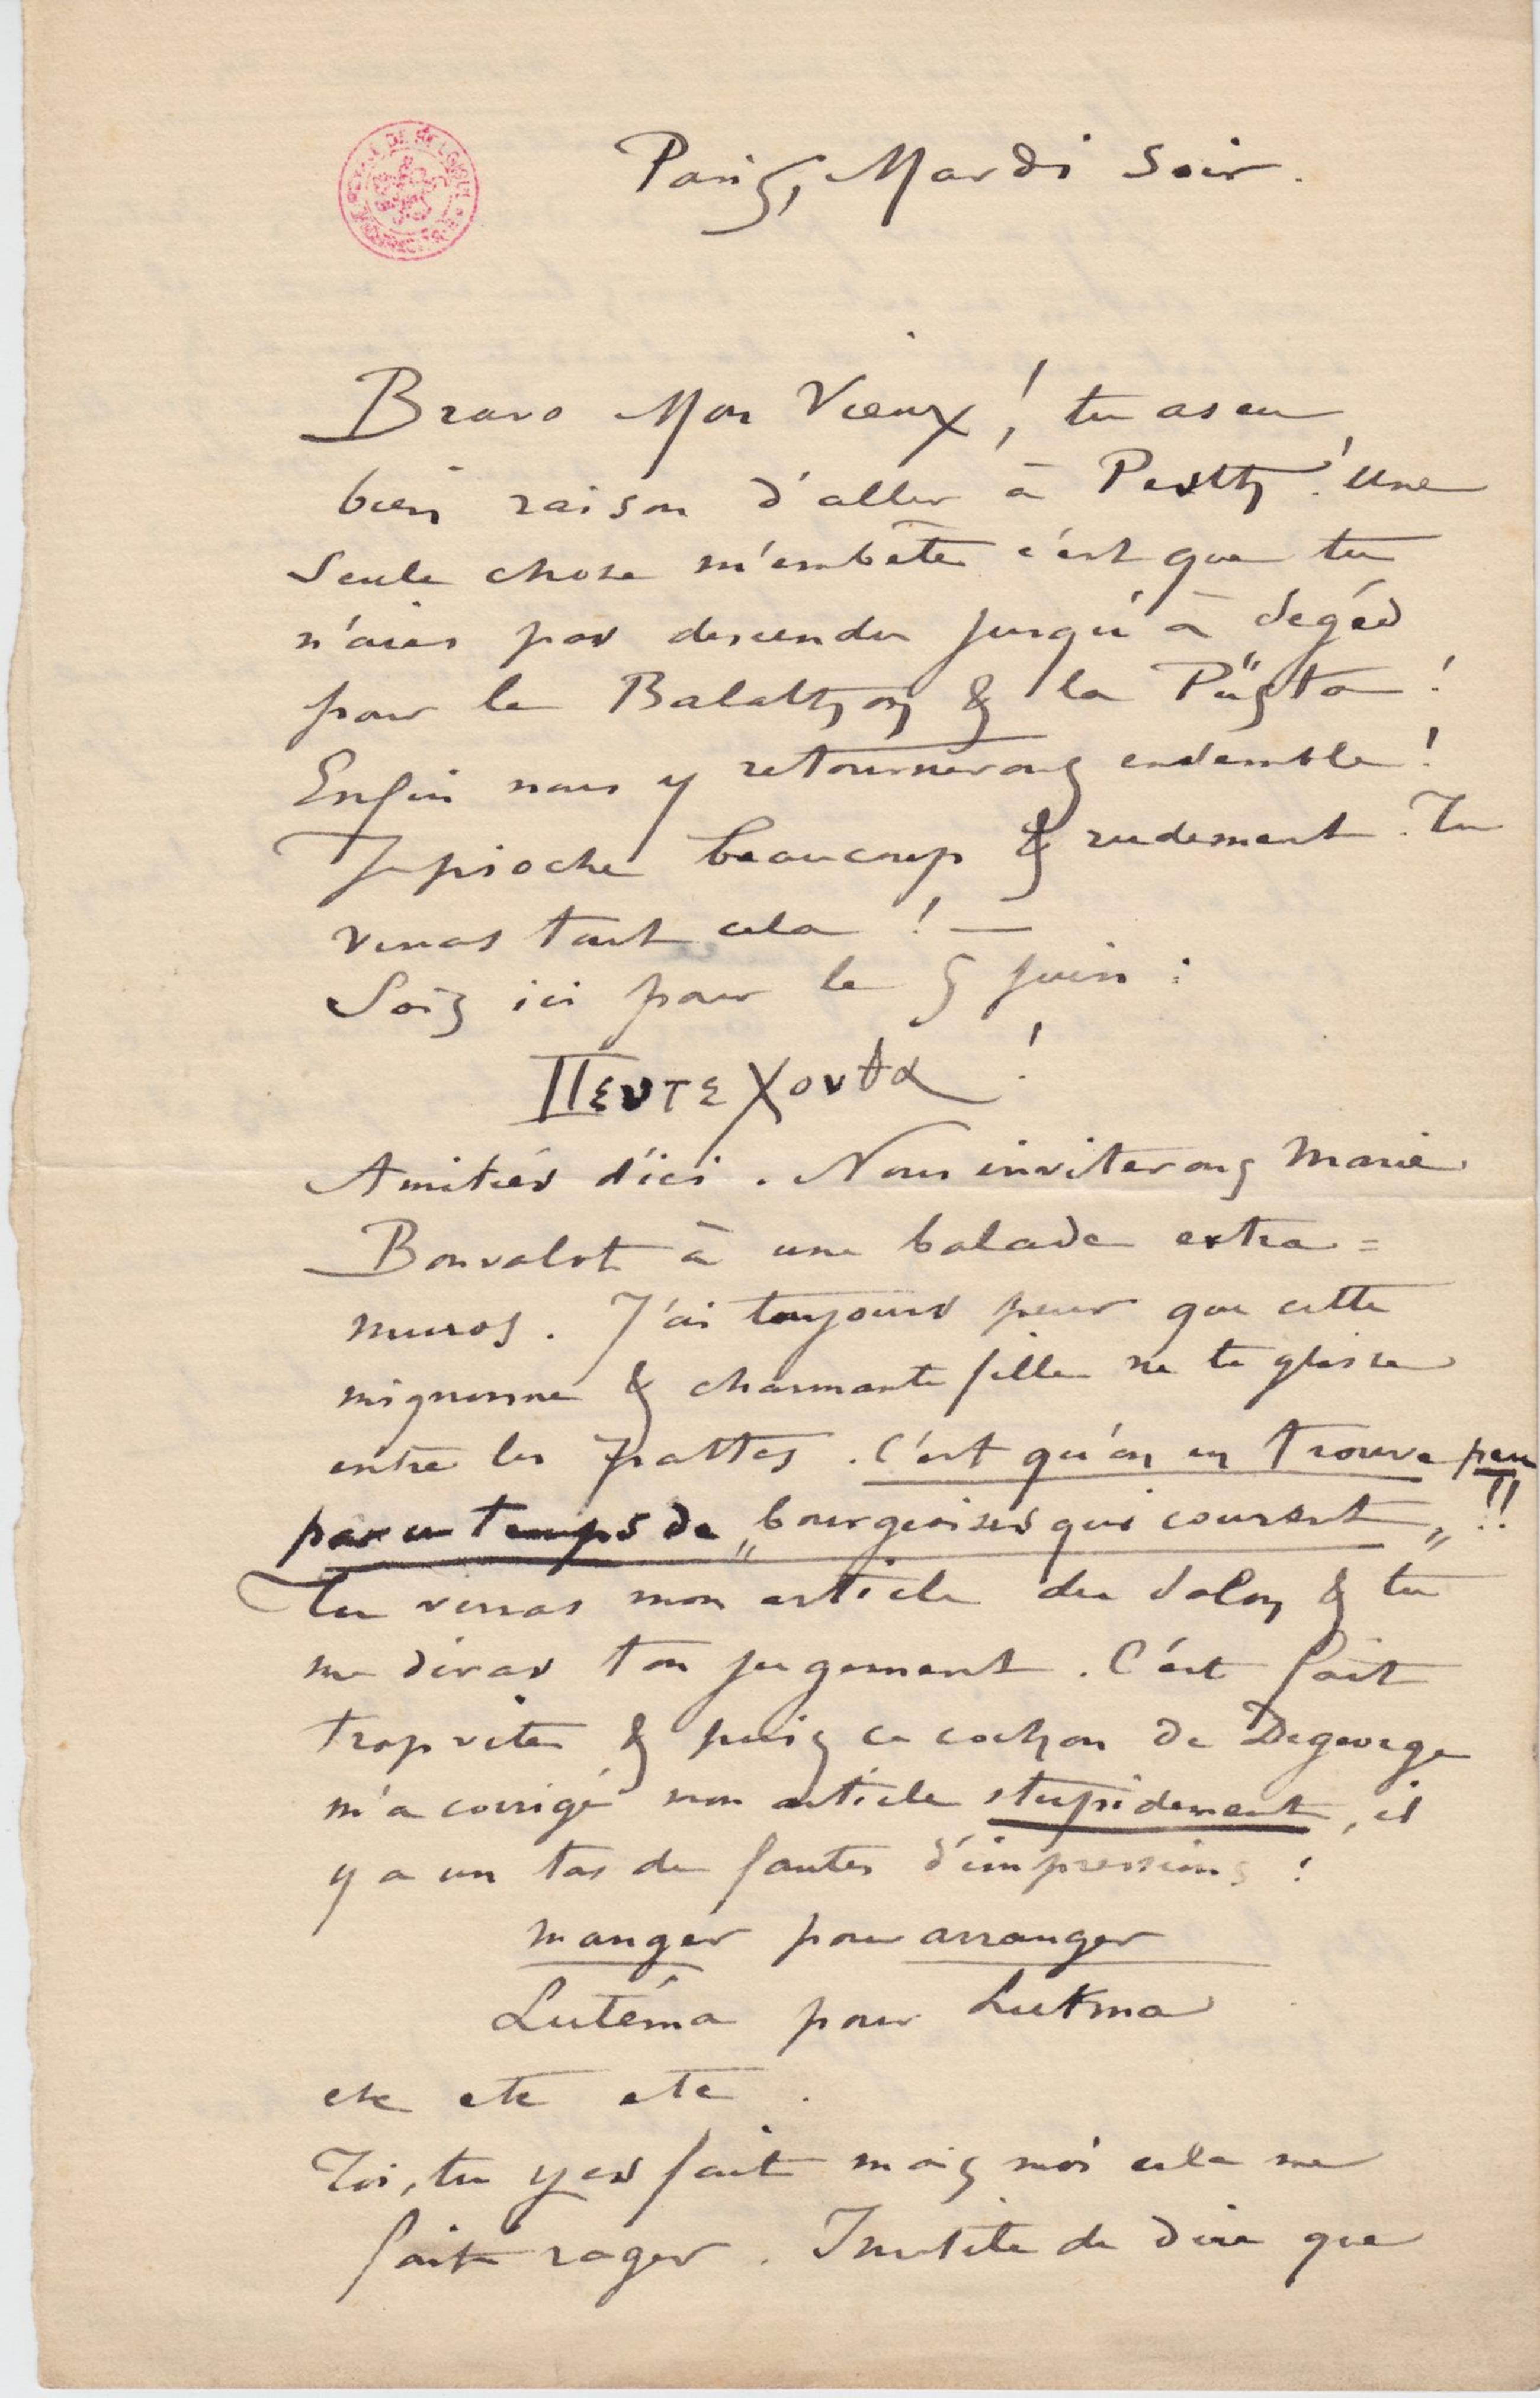 Paris, Mardi Soir.
Bravo Mon Vieux ! tu as eu
bien raison d'aller à Pesth ! Une
Seule chose m'embête c'est que tu
n'aies pas descendu jusqu'à Segéd
pour le Balathon & la Püsta !
Enfin nous y retournerons ensemble !
Je pioche beaucoup & rudement. Tu
verras tout cela ! —
Sois ici pour le 5 Juin :
Πεντε χονθα !
Amitiés d'ici. Nous inviterons Marie
Bonvalot à une balade extra=
muros. J'ai toujours peur que cette
mignonne & charmante fille ne te glisse
entre les pattes. C'est qu'on en trouve peu
par un temps de „bourgeoises qui courent„ !!
Tu verras mon article du Salon & tu
me diras ton jugement. C'est fait
trop vite & puis ce cochon de Degeorge
m'a corrigé mon article stupidement, il
y a un tas de fautes d'impressions !
manger pour arranger
Lutéma pour Lutma
etc etc etc.
Toi, tu y es fait mais moi cela me
fait rager. Inutile de dire que